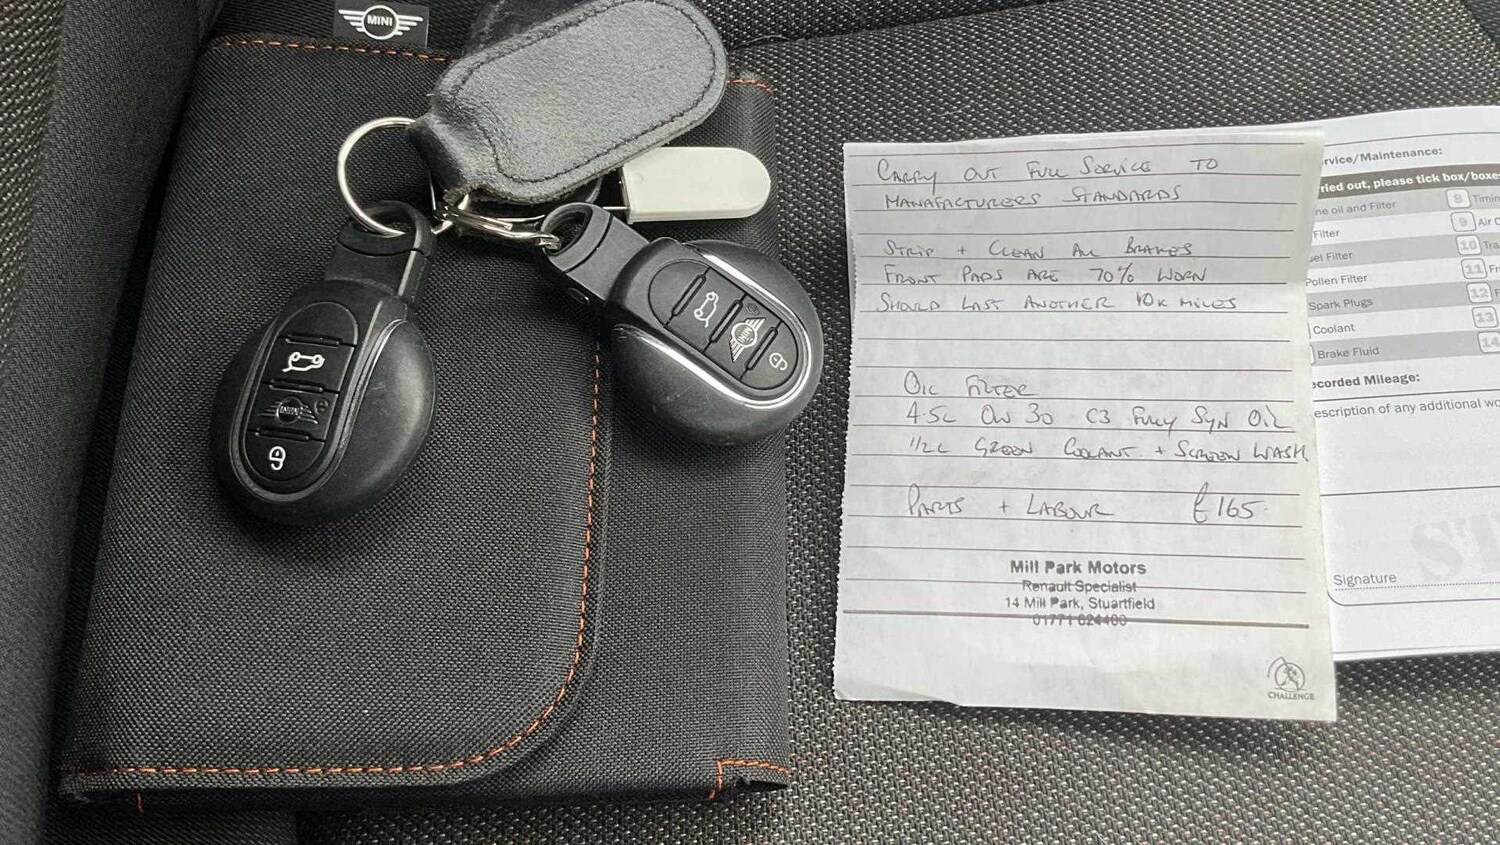 MINI
MINI
MINI
CARRY OUT FULL SERVICE TO
MANAFACTURERS STANDARDS
STRIP + CLEAN ALL BRAKES
FRONT PADS ARE 70% WORN
SHOULD LAST ANOTHER 10K MILES
OIL FILTER
4.5L 0W30 C3 FULLY SYN OIL
1/2L GREEN COOLANT + SCREEN WASH
PARTS + LABOUR £165
Mill Park Motors
Renault Specialist
14 Mill Park, Stuartfield
01771 624400
CHALLENGE
rvice/Maintenance:
ried out, please tick box/boxes
ne oil and Filter 8 Timin
Filter 9 Air C
uel Filter 10 Tra
Pollen Filter 11 Fr
Spark Plugs 12 F
Coolant 13
Brake Fluid 14
ecorded Mileage:
escription of any additional wo
ST
Signature